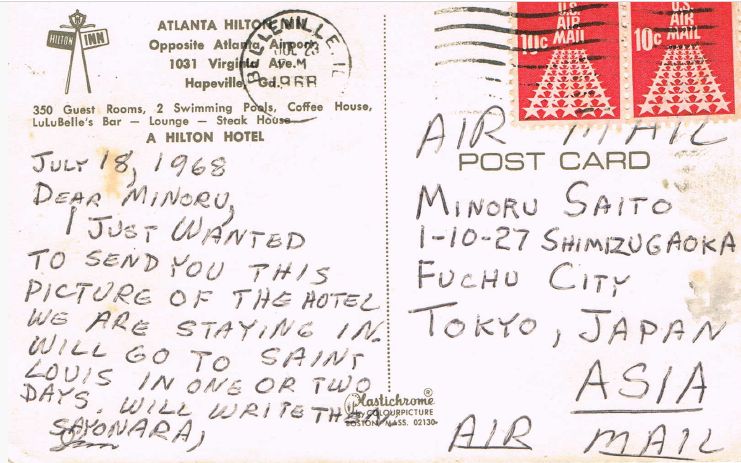 HILTON INN
ATLANTA HILTON INN
Opposite Atlanta Airport
1031 Virginia Ave.
Hapeville, Ga.
350 Guest Rooms, 2 Swimming Pools, Coffee House,
LuLuBelle's Bar — Lounge — Steak House
A HILTON HOTEL
JULY 18, 1968
DEAR MINORU,
I JUST WANTED
TO SEND YOU THIS
PICTURE OF THE HOTEL
WE ARE STAYING IN.
WILL GO TO SAINT
LOUIS IN ONE OR TWO
DAYS. WILL WRITE THEN
SAYONARA,
Plastichrome®
by COLOURPICTURE
BOSTON, MASS. 02130
BELLEVILLE IL
PM
1968
U.S.
AIR
MAIL
10c
U.S.
AIR
MAIL
10c
AIR MAIL
POST CARD
MINORU SAITO
1-10-27 SHIMIZUGAOKA
FUCHU CITY
TOKYO, JAPAN
ASIA
AIR MAIL